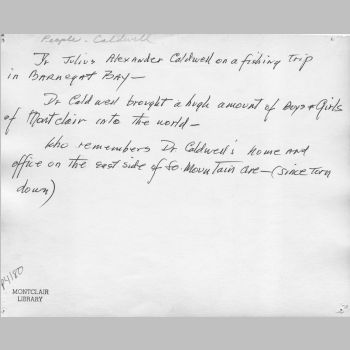 People - Caldwell
Dr Julius Alexander Caldwell on a fishing Trip
in BARNEGAT BAY —
Dr Caldwell brought a hugh amount of Boys & Girls
of Montclair into the world —
Who remembers Dr Caldwell's Home and
office on the east side of So. Mountain Ave — (since torn
down)
P4180
MONTCLAIR
LIBRARY